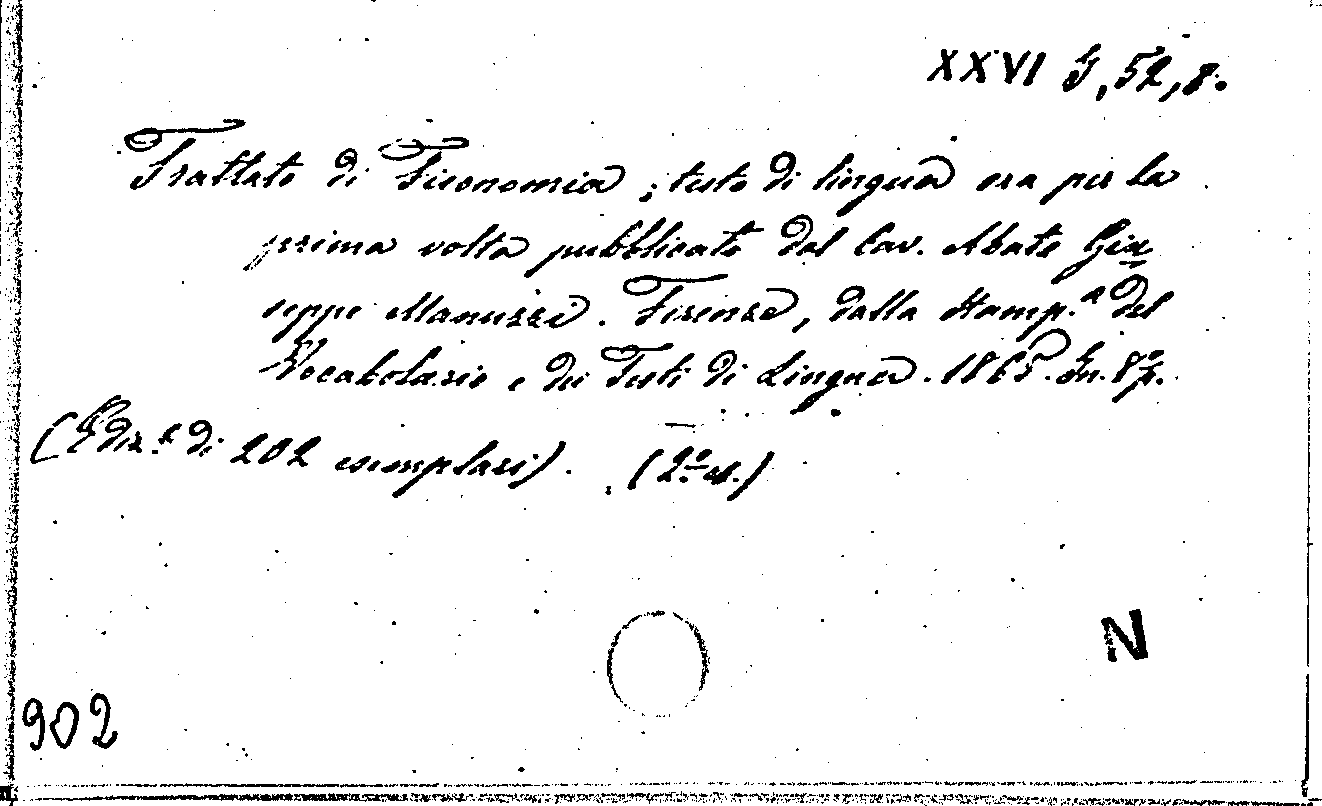 XXVI G, 52, 8.
Trattato di Fisonomia ; testo di lingua ora per la
prima volta pubblicato dal Cav. Abate Giu
seppe Manuzzi. Firenze, dalla Stamp.a del
Vocabolario e dei Testi di Lingua. 1865. In. 8º p.
(Ediz.e di 202 esemplari). (2º es.)
N
902